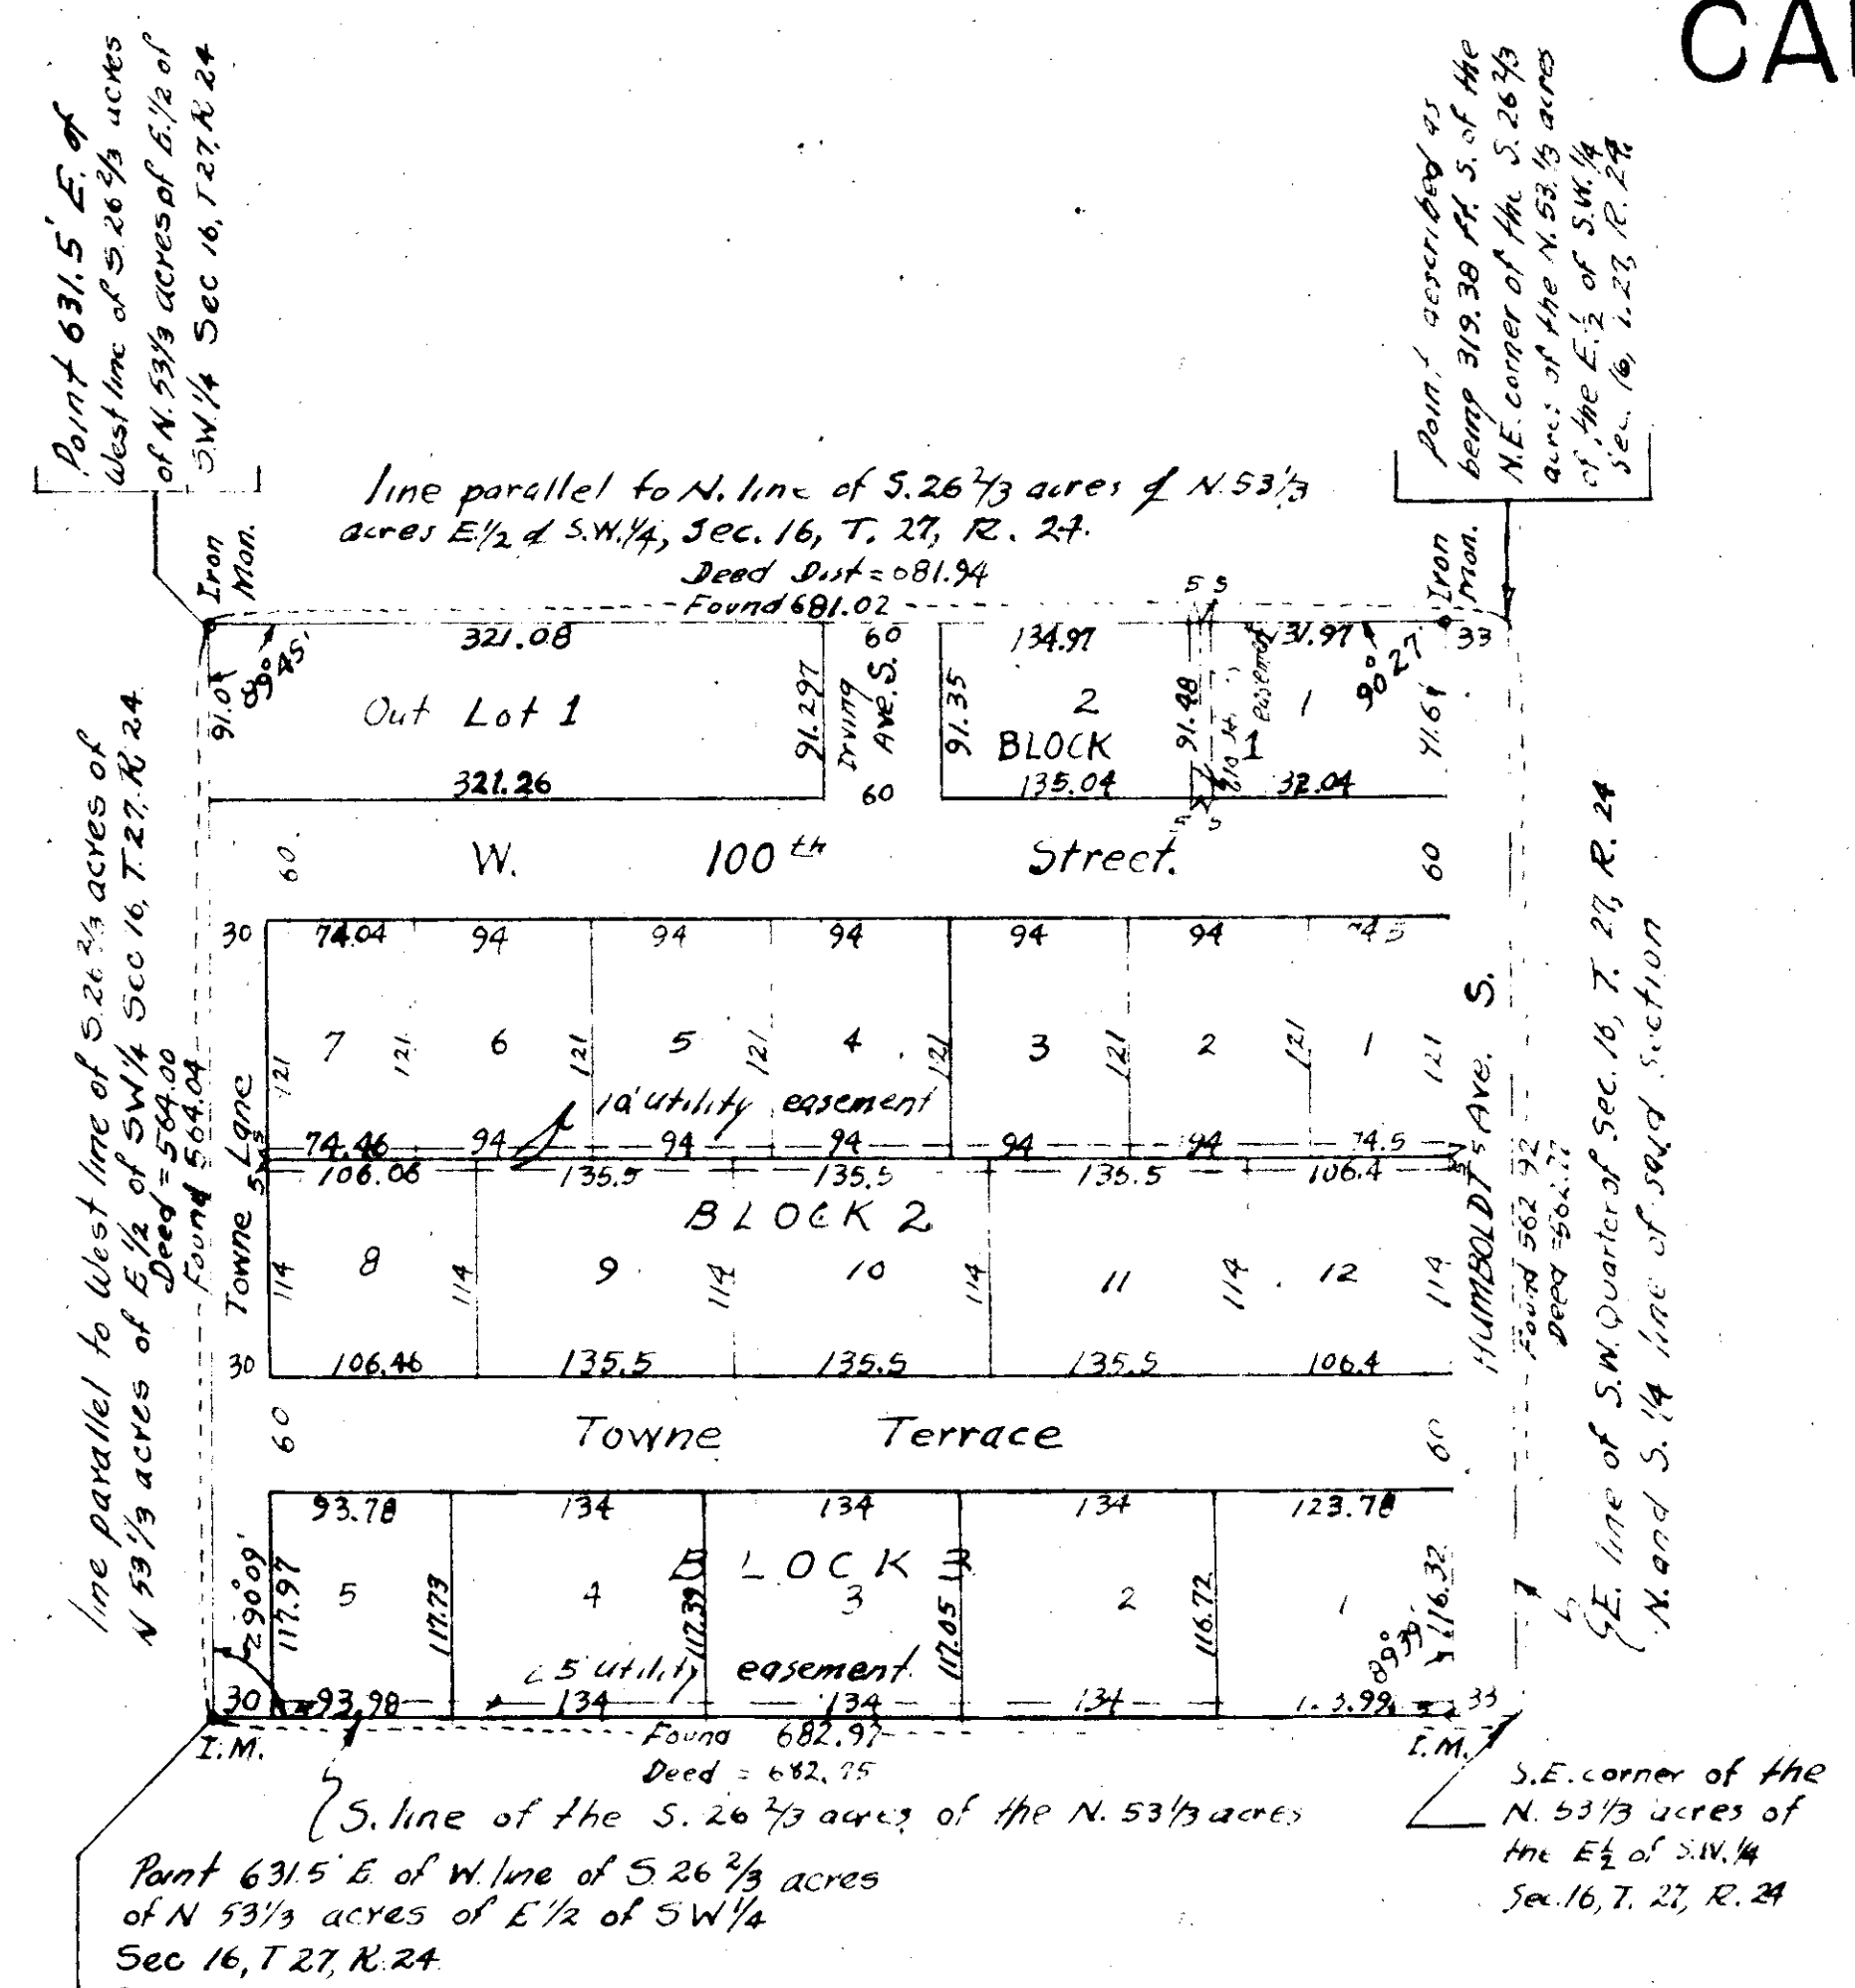 CA
Point 631.5' E. of
West line of S. 26 2/3 acres
of N. 53 1/3 acres of E. 1/2 of
S.W. 1/4 Sec 16, T 27, R 24
Point described as
being 319.38 Ft. S. of the
N.E. corner of the S. 26 2/3
acres of the N. 53 1/3 acres
of the E. 1/2 of S.W. 1/4
Sec. 16, T. 27, R. 24.
line parallel to N. line of S. 26 2/3 acres of N. 53 1/3
acres E 1/2 of S.W. 1/4, Sec. 16, T. 27, R. 24.
Deed Dist = 681.94
Found 681.02
Iron
Mon.
Iron
Mon.
5 5
321.08
60
134.97
131.97
33
89° 45'
90° 27'
91.0
Out Lot 1
91.297
Irving
Ave. S.
91.35
2
BLOCK
1
91.48
easement
1
91.61
321.26
60
135.04
132.04
5 5
60
W. 100th Street.
60
30
74.04
94
94
94
94
94
74.5
7
6
5
4
3
2
1
121
121
121
121
121
121
121
121
10' utility easement
74.46
94
94
94
94
94
74.5
5
5
5
5
106.06
135.5
135.5
135.5
106.4
BLOCK 2
8
9
10
11
12
114
114
114
114
114
114
30
106.46
135.5
135.5
135.5
106.4
Towne Lane
HUMBOLDT Ave. S.
60
Towne Terrace
60
93.78
134
134
134
123.78
BLOCK 3
5
4
3
2
1
90° 09'
117.97
117.73
117.39
117.05
116.72
116.32
89° 39'
5' utility easement
30
93.98
134
134
134
123.99
5
33
I.M.
Found 682.97
Deed = 682.95
I.M.
line parallel to West line of S. 26 2/3 acres of
N 53 1/3 acres of E 1/2 of SW 1/4 Sec 16, T. 27, R. 24
Deed = 564.00
Found 564.04
Found 562.92
Deed = 562.77
E. line of S.W. Quarter of Sec. 16, T. 27, R. 24
N. and S. 1/4 line of said Section
S. line of the S. 26 2/3 acres of the N. 53 1/3 acres
S.E. corner of the
N. 53 1/3 acres of
the E 1/2 of S.W. 1/4
Sec. 16, T. 27, R. 24
Point 631.5' E. of W. line of S. 26 2/3 acres
of N 53 1/3 acres of E 1/2 of SW 1/4
Sec 16, T 27, R. 24